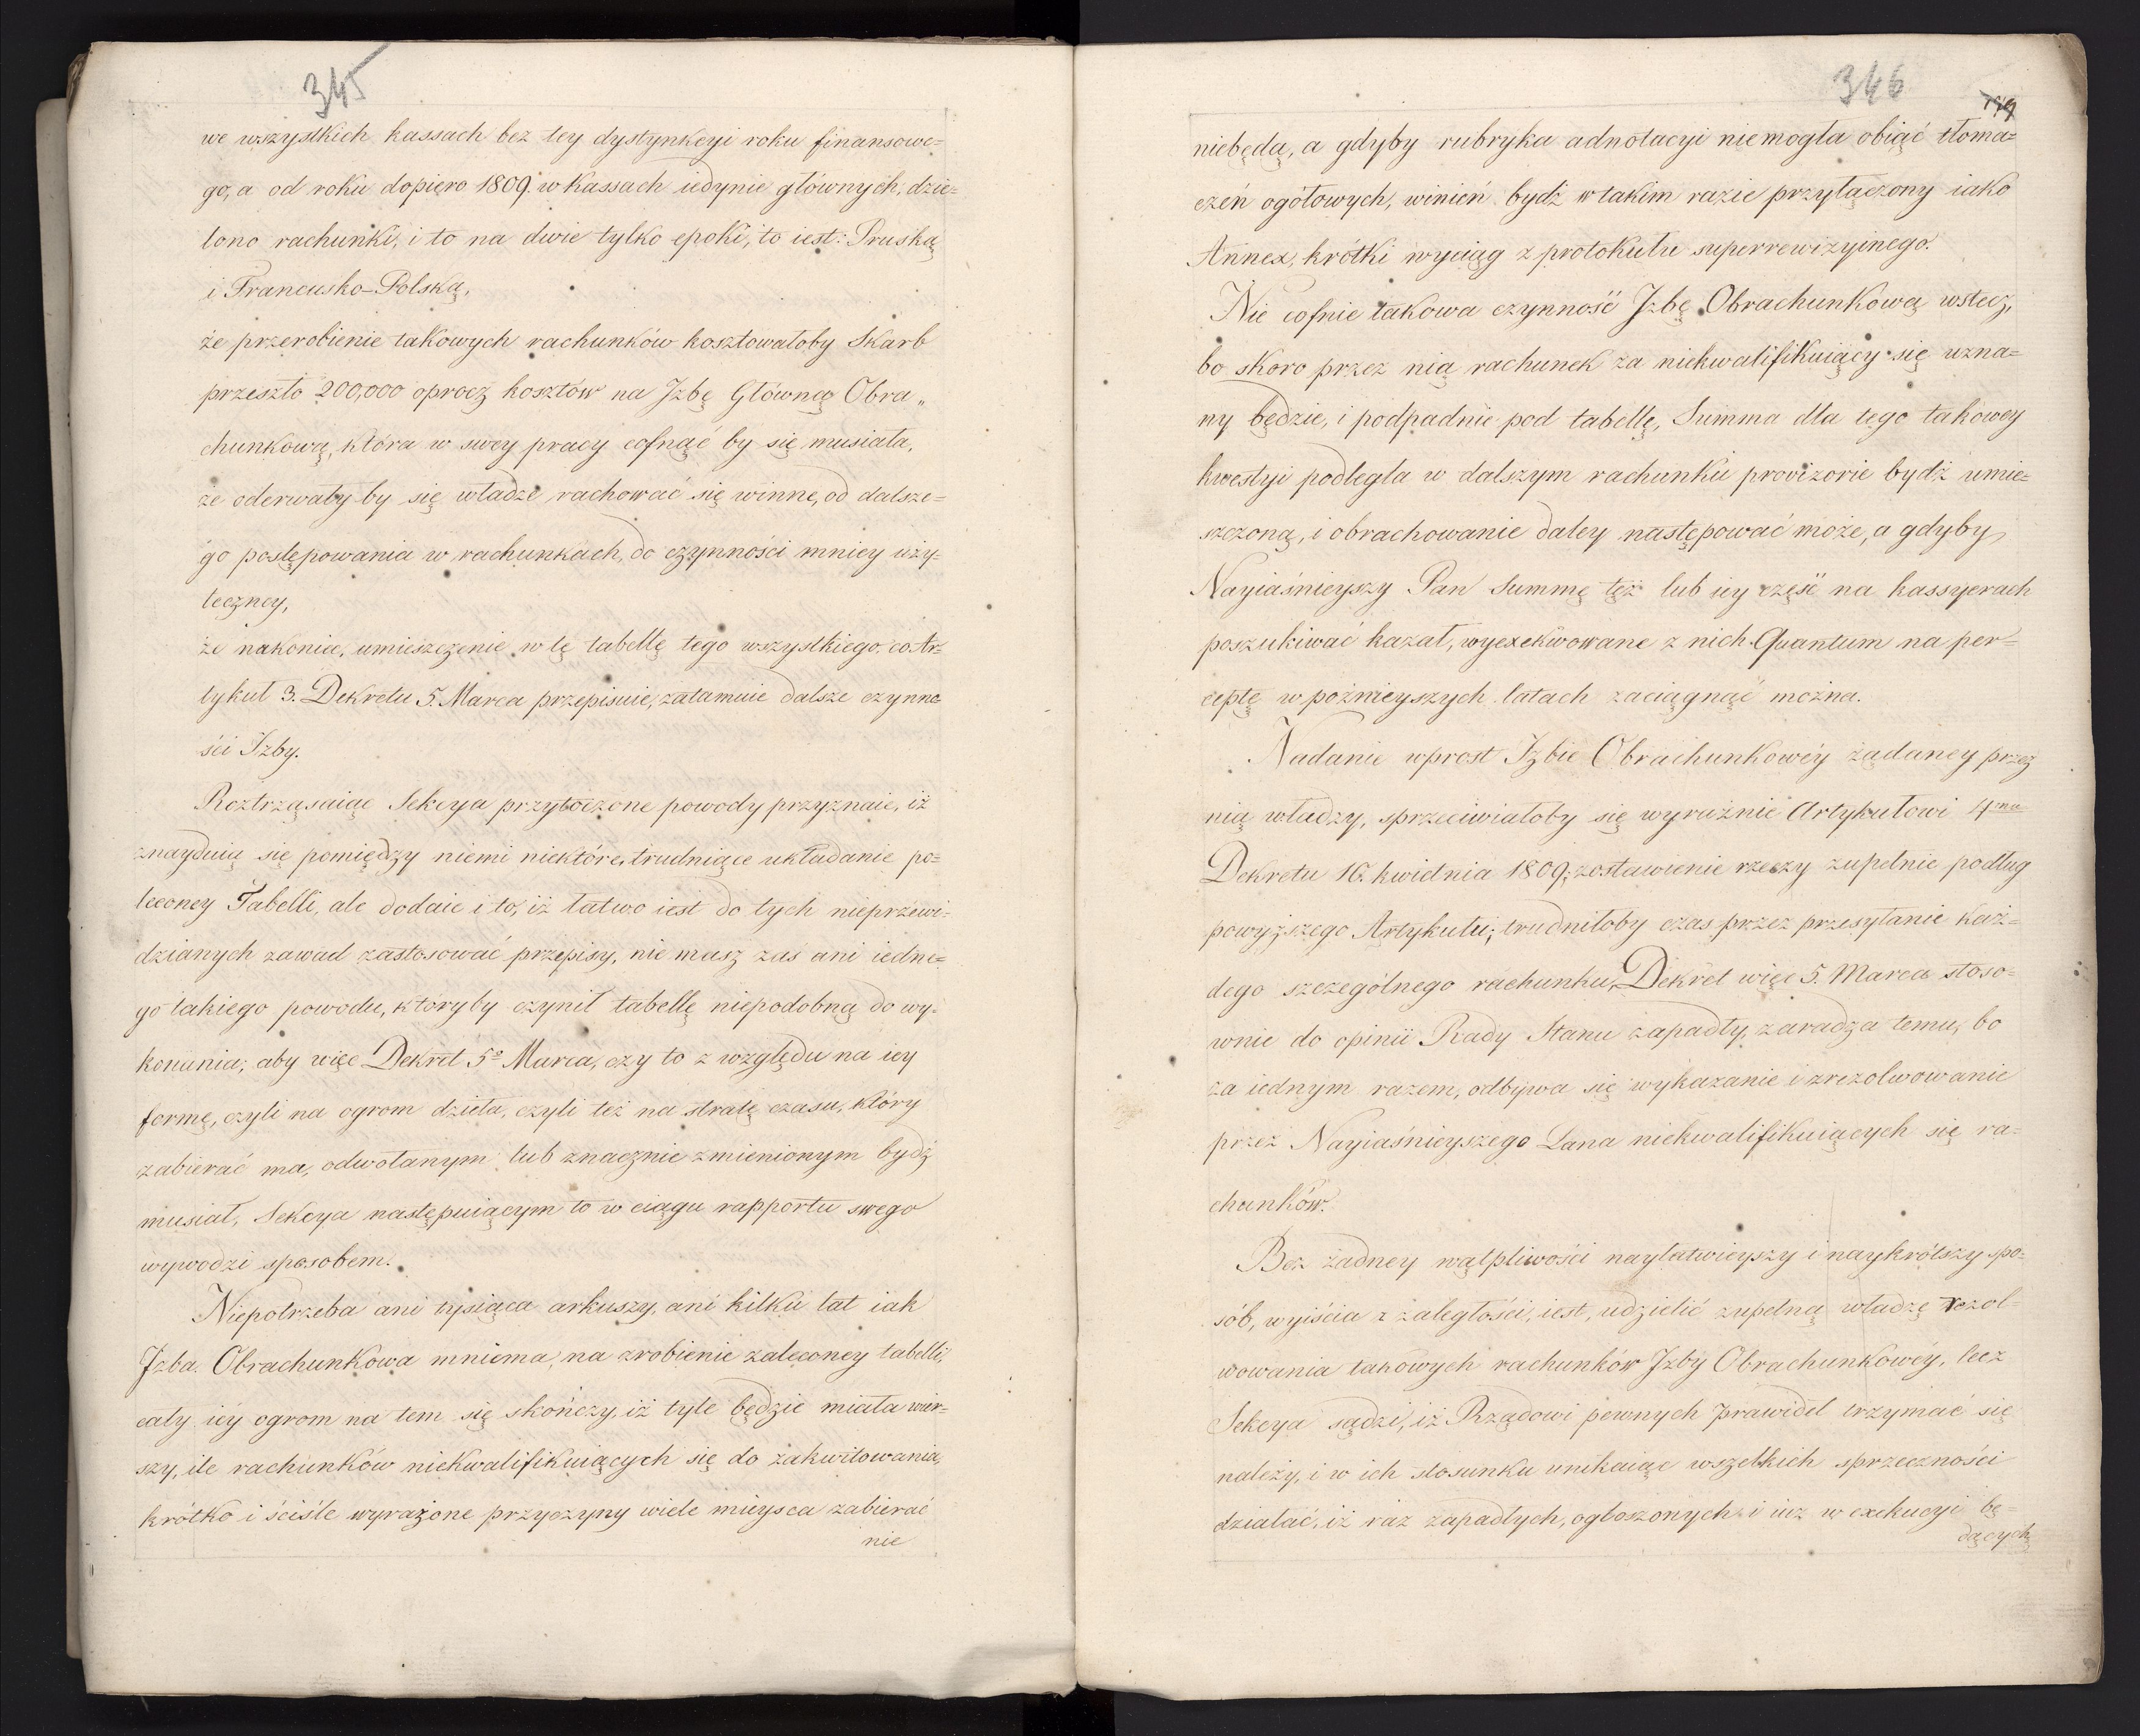 345
we wszystkich kassach bez tey dystynkcyi roku finansowe=
go, a od roku dopiero 1809. w Kassach iedynie głównych, dzie=
lono rachunki, i to na dwie tylko epoki, to iest: Pruską
i Francusko-Polską,
że przerobienie takowych rachunków kosztowałoby Skarb
przeszło 200,000 oprocz kosztów na Jzbę Główną Obra„
chunkową, która w swey pracy cofnąć by się musiała,
że oderwały by się władze rachować się winne, od dalsze=
go postępowania w rachunkach, do czynności mniey uży-
teczney,
że nakoniec, umieszczenie w tę tabellę tego wszystkiego, co Ar-
tykuł 3. Dekretu 5. Marca przepisuie, zatamuie dalsze czynno
ści Izby.
Roztrząsaiąc Sekcya przytoczone powody przyznaie, iż
znayduią się pomiędzy niemi niektóre, trudniące układanie po=
leconey Tabelli, ale dodaie i to, iż łatwo iest do tych nieprzewi-
dzianych zawad zastosować przepisy, nie masz zaś ani iedne=
go takiego powodu, któryby czynił tabellę niepodobną do wy-
konania; aby więc Dekret 5º Marca, czy to z względu na iey
formę, czyli na ogrom dzieła, czyli też na stratę czasu, który
zabierać ma, odwołanym lub znacznie zmienionym bydź
musiał, Sekcya następuiącym to w ciągu rapportu swego
wywodzi sposobem.
Niepotrzeba ani tysiąca arkuszy, ani kilku lat iak
Jzba Obrachunkowa mniema, na zrobienie zaleconey tabelli,
cały iéy ogrom na tem się skończy, iż tyle będzie miała wier-
szy, ile rachunków niekwalifikuiących się do zakwitowania,
krótko i ściśle wyrażone przyczyny wiele mieysca zabierać
nie
346
niebędą, a gdyby rubryka adnotacyi niemogła obiąć tłoma=
czeń ogółowych, winień bydź w takim razie przyłączony iako
Annex, krótki wyciąg z protokułu superrewizyinego.
Nie cofnie takowa czynność Jzbę Obrachunkową wstecz,
bo skoro przez nią rachunek za niekwalifikuiący się uzna=
ny będzie, i podpadnie pod tabellę, Summa dla tego takowey
kwestyi podległa w dalszym rachunku provizorie bydź umie=
szczoną, i obrachowanie daley następować może, a gdyby
Nayiaśnieyszy Pan Summę też lub iey część na kassyerach
poszukiwać kazał, wyexekwowane z nich Quantum na per=
ceptę w poźnieyszych latach zaciągnąć można.
Nadanie wprost Jzbie Obrachunkowéy żądaney przez
nią władzy, sprzeciwiałoby się wyraźnie Artykułowi 4mu
Dekretu 16. kwietnia 1809; zostawienie rzeczy zupełnie podług
powyższego Artykułu, trudniłoby czas przez przesyłanie każ=
dego szczególnego rachunku, Dekret więc 5. Marca stoso=
wnie do opinii Rady Stanu zapadły, zaradza temu, bo
za iednym razem, odbywa się wykazanie i zrezolwowanie
przez Nayiaśnieyszego Pana niekwalifikuiących się ra=
chunków.
Bez żadney wątpliwości nayłatwieyszy i naykrótszy spo=
sób, wyiścia z zaległości, iest, udzielić zupełną władzę rezol-
wowania takowych rachunków Jzby Obrachunkowéy, lecz
Sekcya sądzi, iż Rządowi pewnych prawideł trzymać się
należy, i w ich stosunku unikaiąc wszelkich sprzeczności
działać, iż raz zapadłych, ogłoszonych i iuż w exekucyi bę=
dących